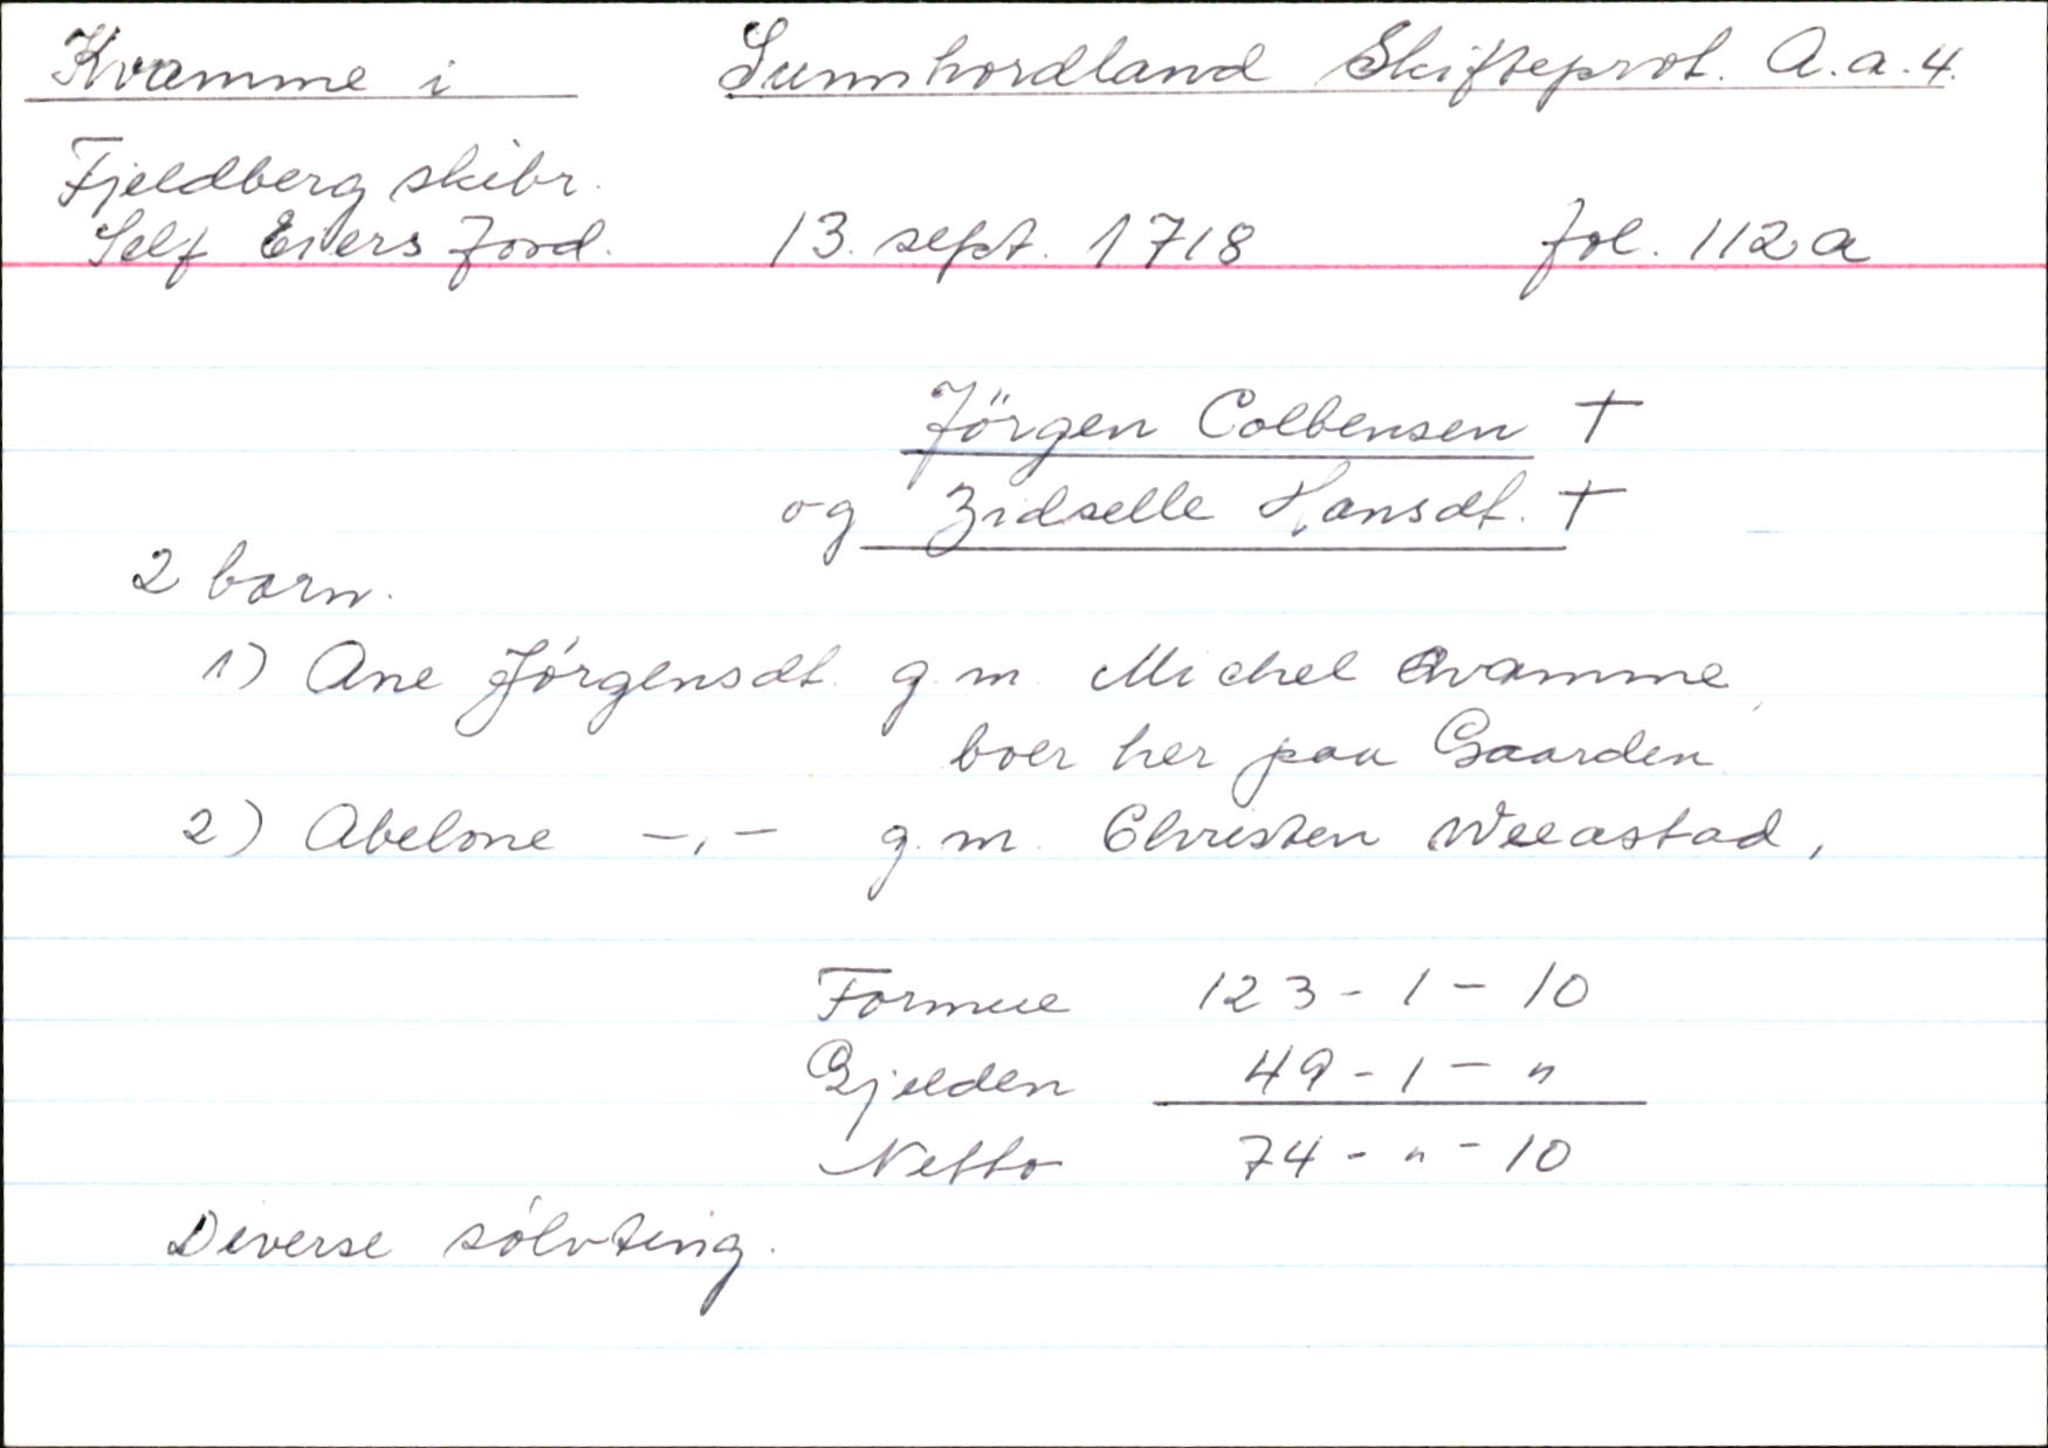 Kvamme i Sunnhordland Skifteprot. A.a.4.
Fjeldberg skibr.
Self Eiers Jord. 13. sept. 1718 fol. 112a
Jörgen Colbensen †
og Zidselle Hansdt. †
2 barn.
1) Ane Jørgensdt. g.m. Michel Qvamme,
boer her paa Gaarden.
2) Abelone -,- g.m. Christen Weeastad,
Formue 123 - 1 - 10
Gjelden 49 - 1 - "
Netto 74 - " - 10
Diverse sølvting.